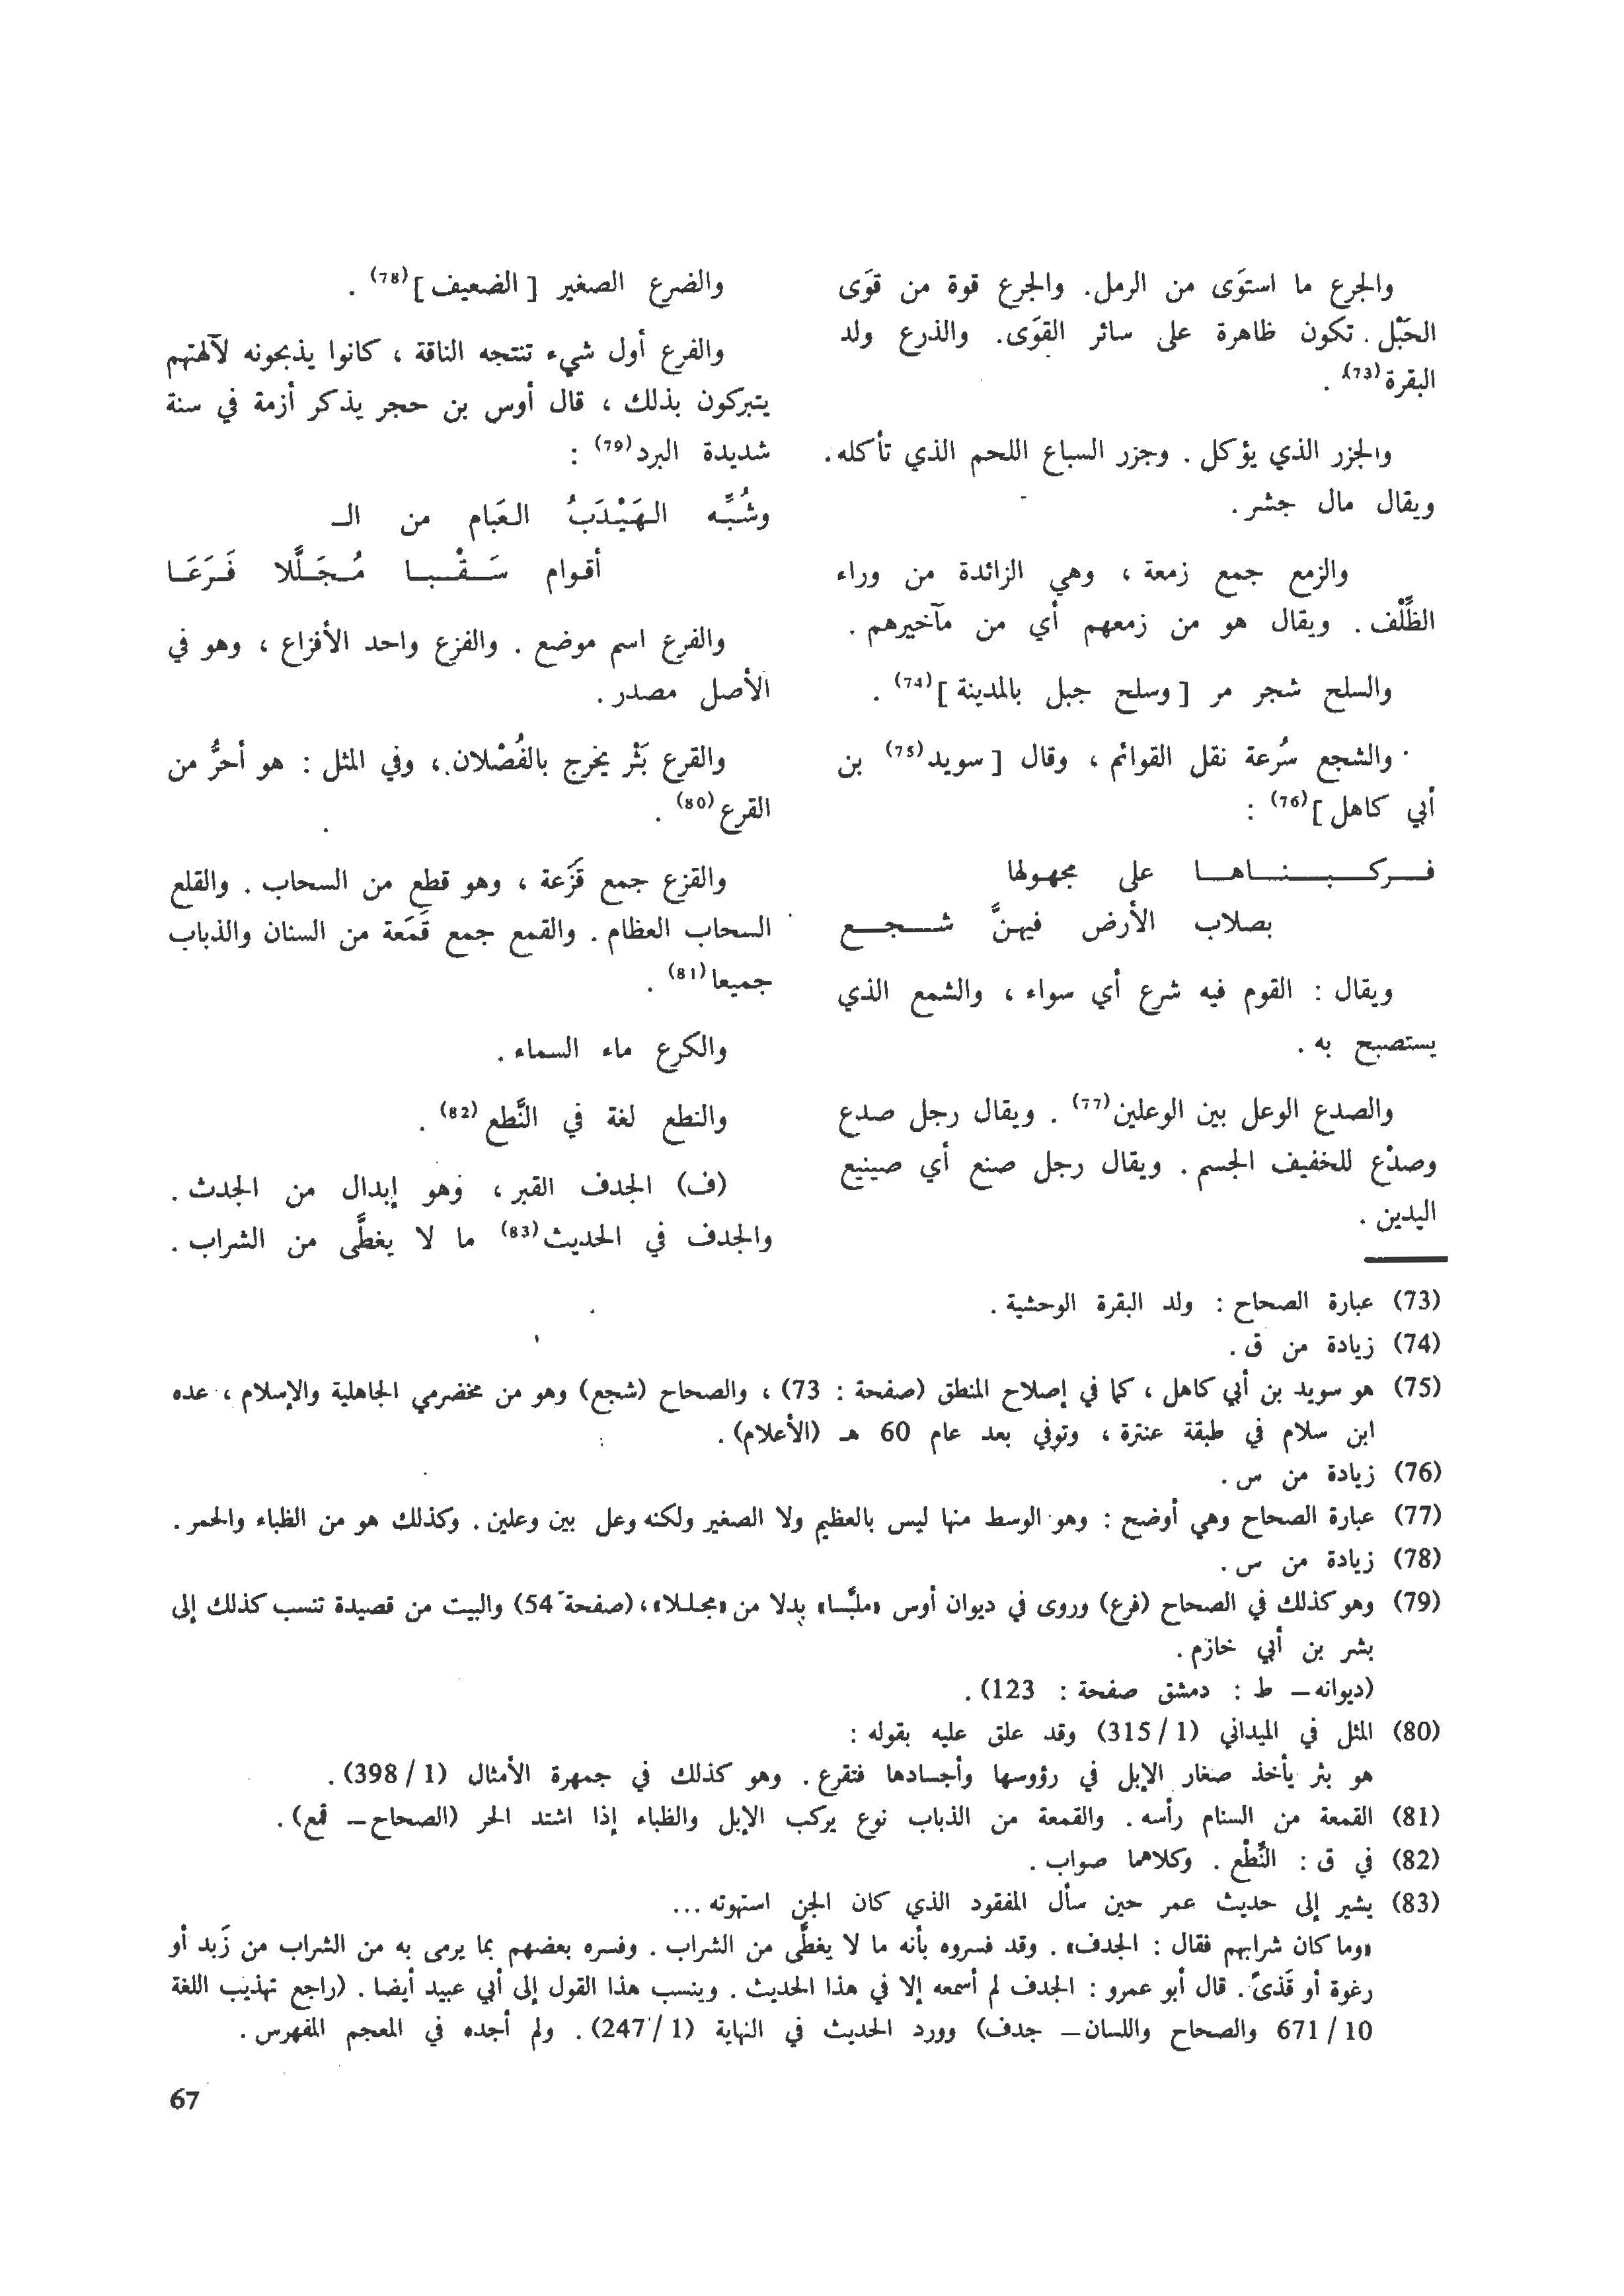 والجرع ما استوَى من الرمل. والجرع قوة من قوَى
الحَبْل. تكون ظاهرة على سائر القوَى. والذرع ولد
البقرة(73) .
والجزر الذي يؤكل . وجزر السباع اللحم الذي تأكله.
ويقال مال جشر.
والزمع جمع زمعة ، وهي الزائدة من وراء
الظِّلْف . ويقال هو من زمعهم أي من مآخيرهم .
والسلح شجر مر [وسلح جبل بالمدينة](74) .
والشجع سُرعة نقل القوائم ، وقال [سويد(75) بن
أبي كاهل](76) :
فـركـبـنـاهـا على مجهولها
بصلاب الأرض فيهنَّ شـجـع
ويقال : القوم فيه شرع أي سواء ، والشمع الذي
يستصبح به .
والصدع الوعل بين الوعلين(77) . ويقال رجل صدع
وصدْع للخفيف الجسم . ويقال رجل صنع أي صينيع
اليدين .
والضرع الصغير [الضعيف](78) .
والفرع أول شيء تنتجه الناقة ، كانوا يذبحونه لآلهتهم
يتبركون بذلك ، قال أوس بن حجر يذكر أزمة في سنة
شديدة البرد(79) :
وشُبِّه الهَيْدَبُ العَبام من الـ
أقوام سَـقْـبـا مُـجَـلَّلا فَـرَعَـا
والفرع اسم موضع . والفزع واحد الأفزاع ، وهو في
الأصل مصدر .
والقرع بَثْر يخرج بالفُصْلان ، وفي المثل : هو أحرُّ من
القرع(80) .
والقزع جمع قَزَعة ، وهو قطع من السحاب . والقلع
السحاب العظام . والقمع جمع قَمَعة من السنان والذباب
جميعا(81) .
والكرع ماء السماء .
والنطع لغة في النَّطع(82) .
(ف) الجدف القبر ، وهو إبدال من الجدث .
والجدف في الحديث(83) ما لا يغطَّى من الشراب .
(73) عبارة الصحاح : ولد البقرة الوحشية .
(74) زيادة من ق .
(75) هو سويد بن أبي كاهل ، كما في إصلاح المنطق (صفحة : 73) ، والصحاح (شجع) وهو من مخضرمي الجاهلية والإسلام ، عده
ابن سلام في طبقة عنترة ، وتوفي بعد عام 60 هـ (الأعلام) .
(76) زيادة من س .
(77) عبارة الصحاح وهي أوضح : وهو الوسط منها ليس بالعظيم ولا الصغير ولكنه وعل بين وعلين . وكذلك هو من الظباء والحمر .
(78) زيادة من س .
(79) وهو كذلك في الصحاح (فرع) وروى في ديوان أوس «ملبَّسا» بدلا من «مجللا» ، (صفحة 54) والبيت من قصيدة تنسب كذلك إلى
بشر بن أبي خازم .
(ديوانه – ط : دمشق صفحة : 123) .
(80) المثل في الميداني (1 / 315) وقد علق عليه بقوله :
هو بثر يأخذ صغار الإبل في رؤوسها وأجسادها فتقرع . وهو كذلك في جمهرة الأمثال (1 / 398) .
(81) القمعة من السنام رأسه . والقمعة من الذباب نوع يركب الإبل والظباء إذا اشتد الحر (الصحاح – قمع) .
(82) في ق : النَّطْع . وكلاهما صواب .
(83) يشير إلى حديث عمر حين سأل المفقود الذي كان الجن استهوته ...
«وما كان شرابهم فقال : الجدف» . وقد فسروه بأنه ما لا يغطَّى من الشراب . وفسره بعضهم بما يرمى به من الشراب من زَبد أو
رغوة أو قَذىً . قال أبو عمرو : الجدف لم أسمعه إلا في هذا الحديث . وينسب هذا القول إلى أبي عبيد أيضا . (راجع تهذيب اللغة
10 / 671 والصحاح واللسان – جدف) وورد الحديث في النهاية (1 / 247) . ولم أجده في المعجم المفهرس .
67